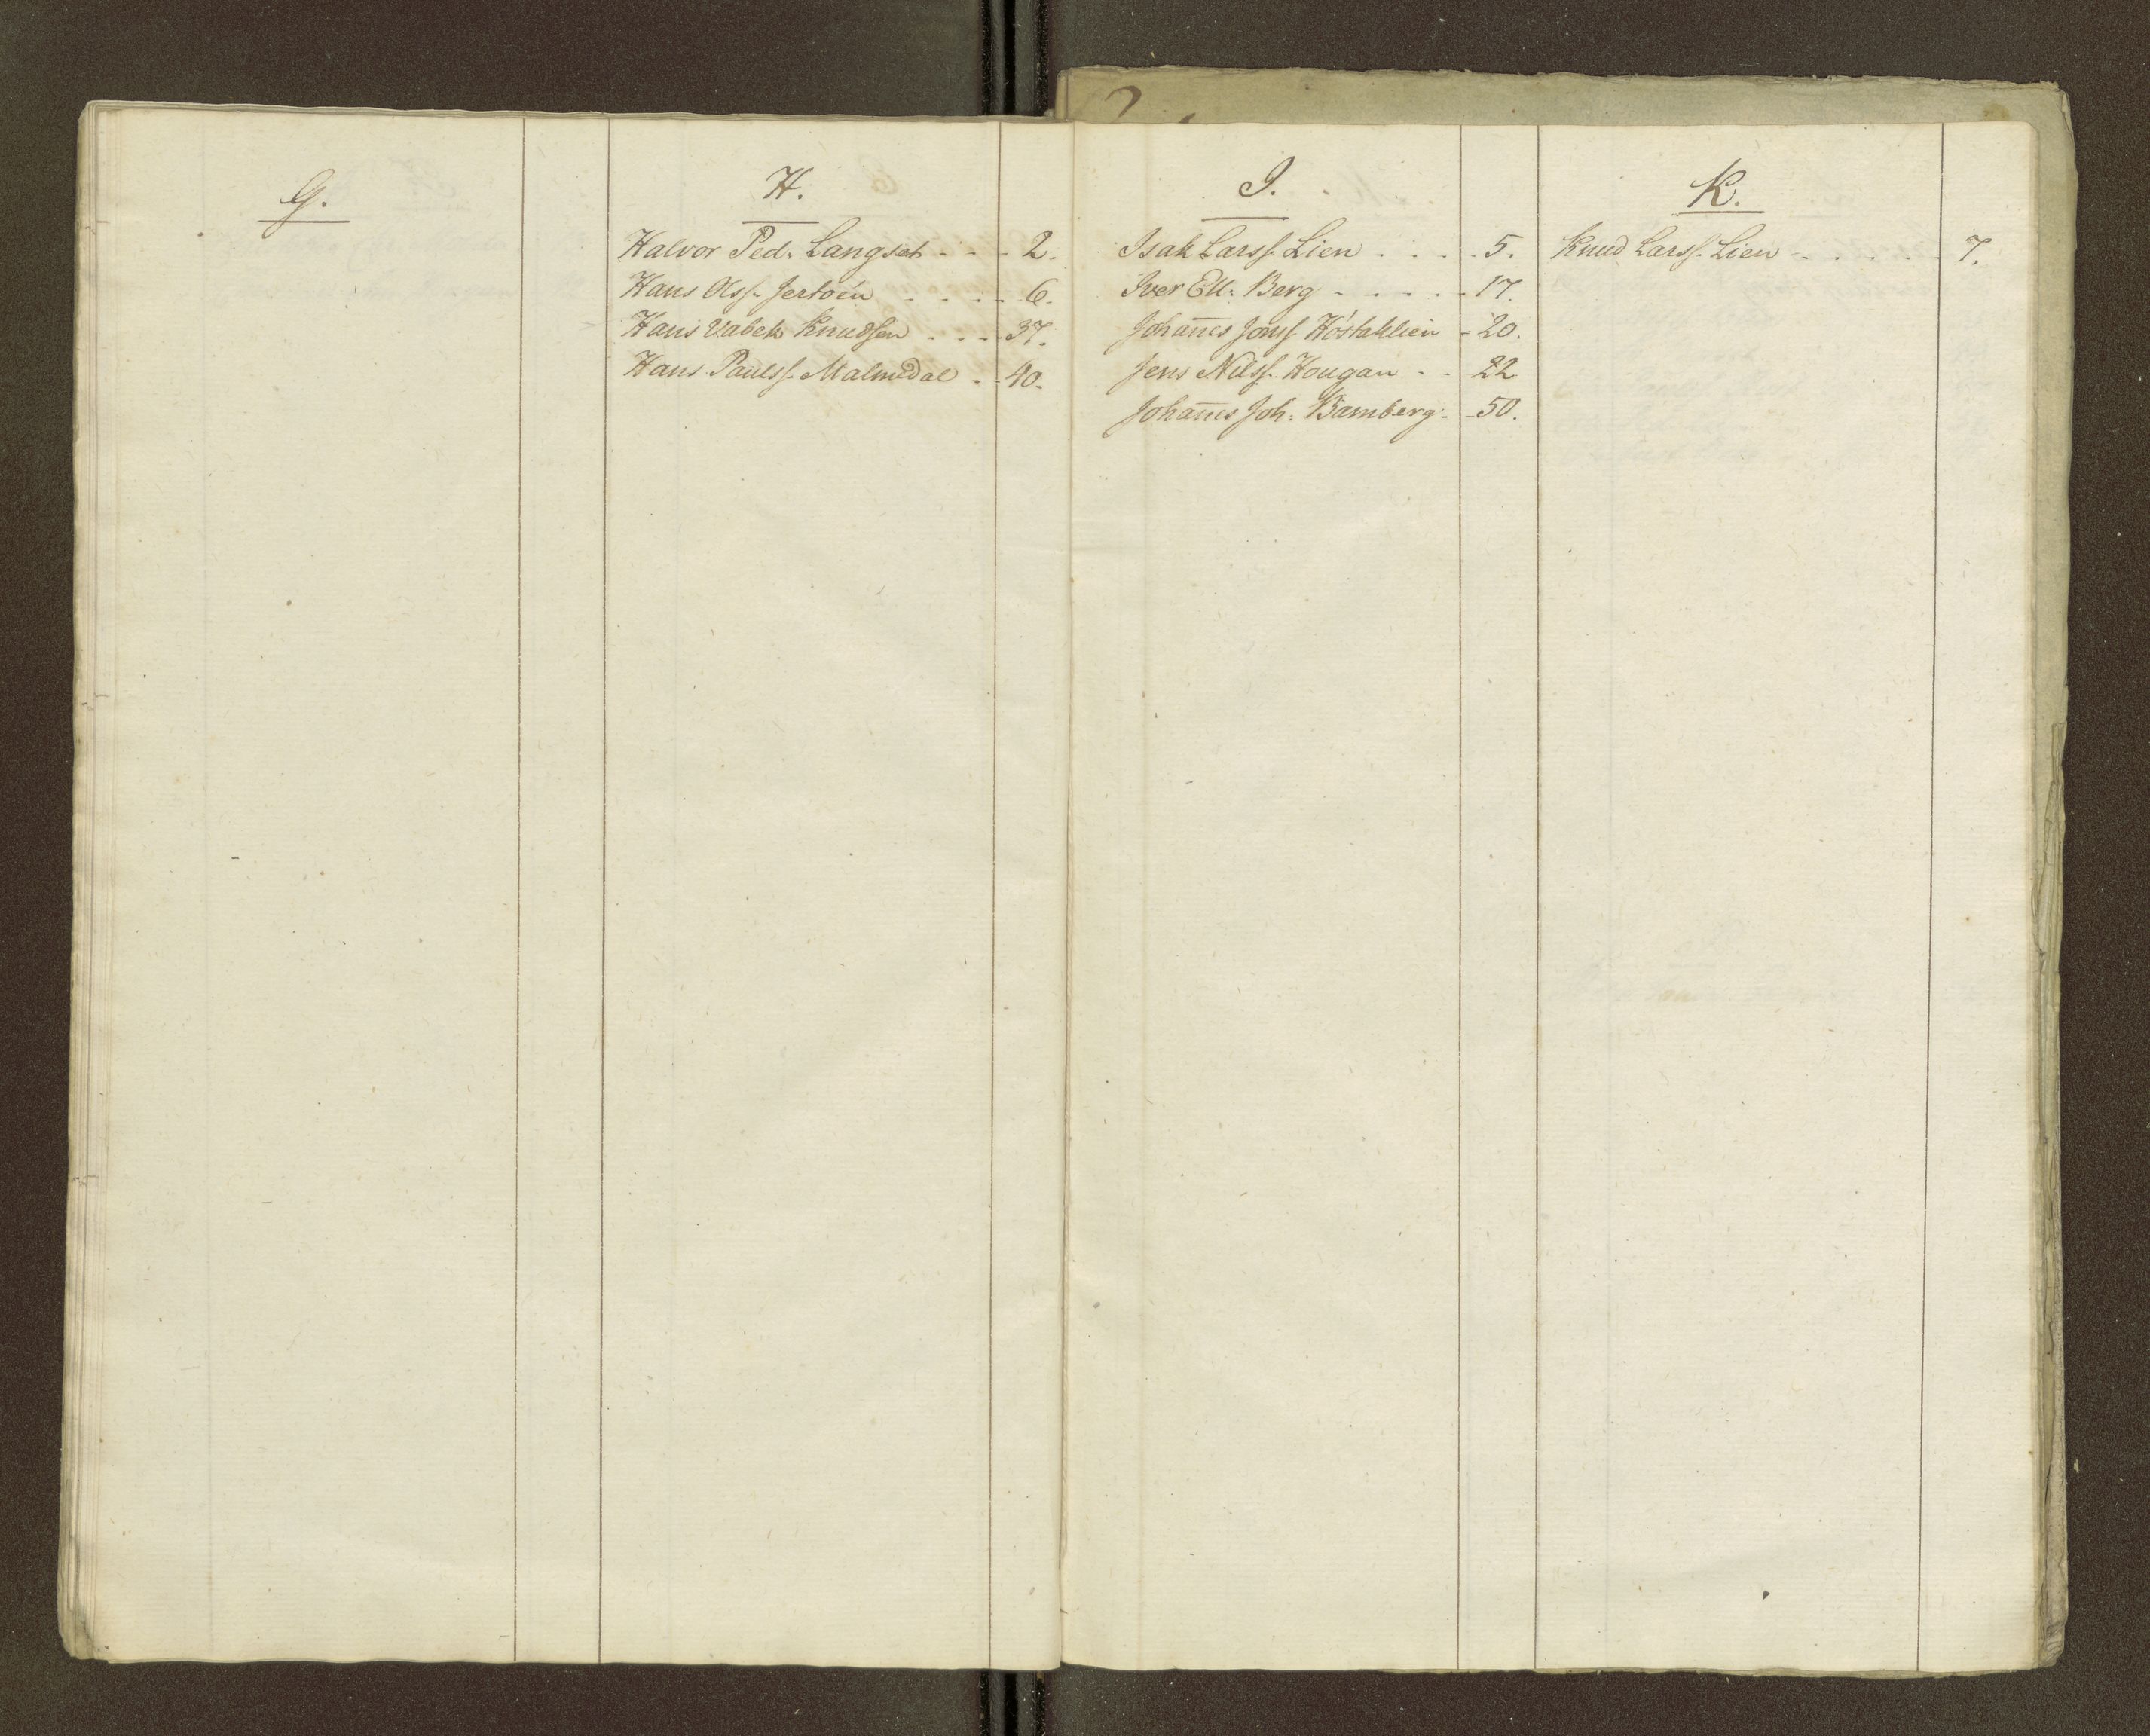 G.
H.
Halvor Ped. Langset - - - 2.
Hans Olss. Jertöen - - - - 6.
Hans Vabek Knudsen - - - 37.
Hans Paulss. Malmedal - - 40.
I.
Isak Larss. Lien - - - - 5.
Iver Ell: Berg - - - - - 17.
Johan̄es Jonss. Höstaklien - 20.
Jens Nilss. Hougan - - 22
Johan̄es Joh: Bamberg - - 50.
K.
Knud Larss. Lien - - - - - 7.